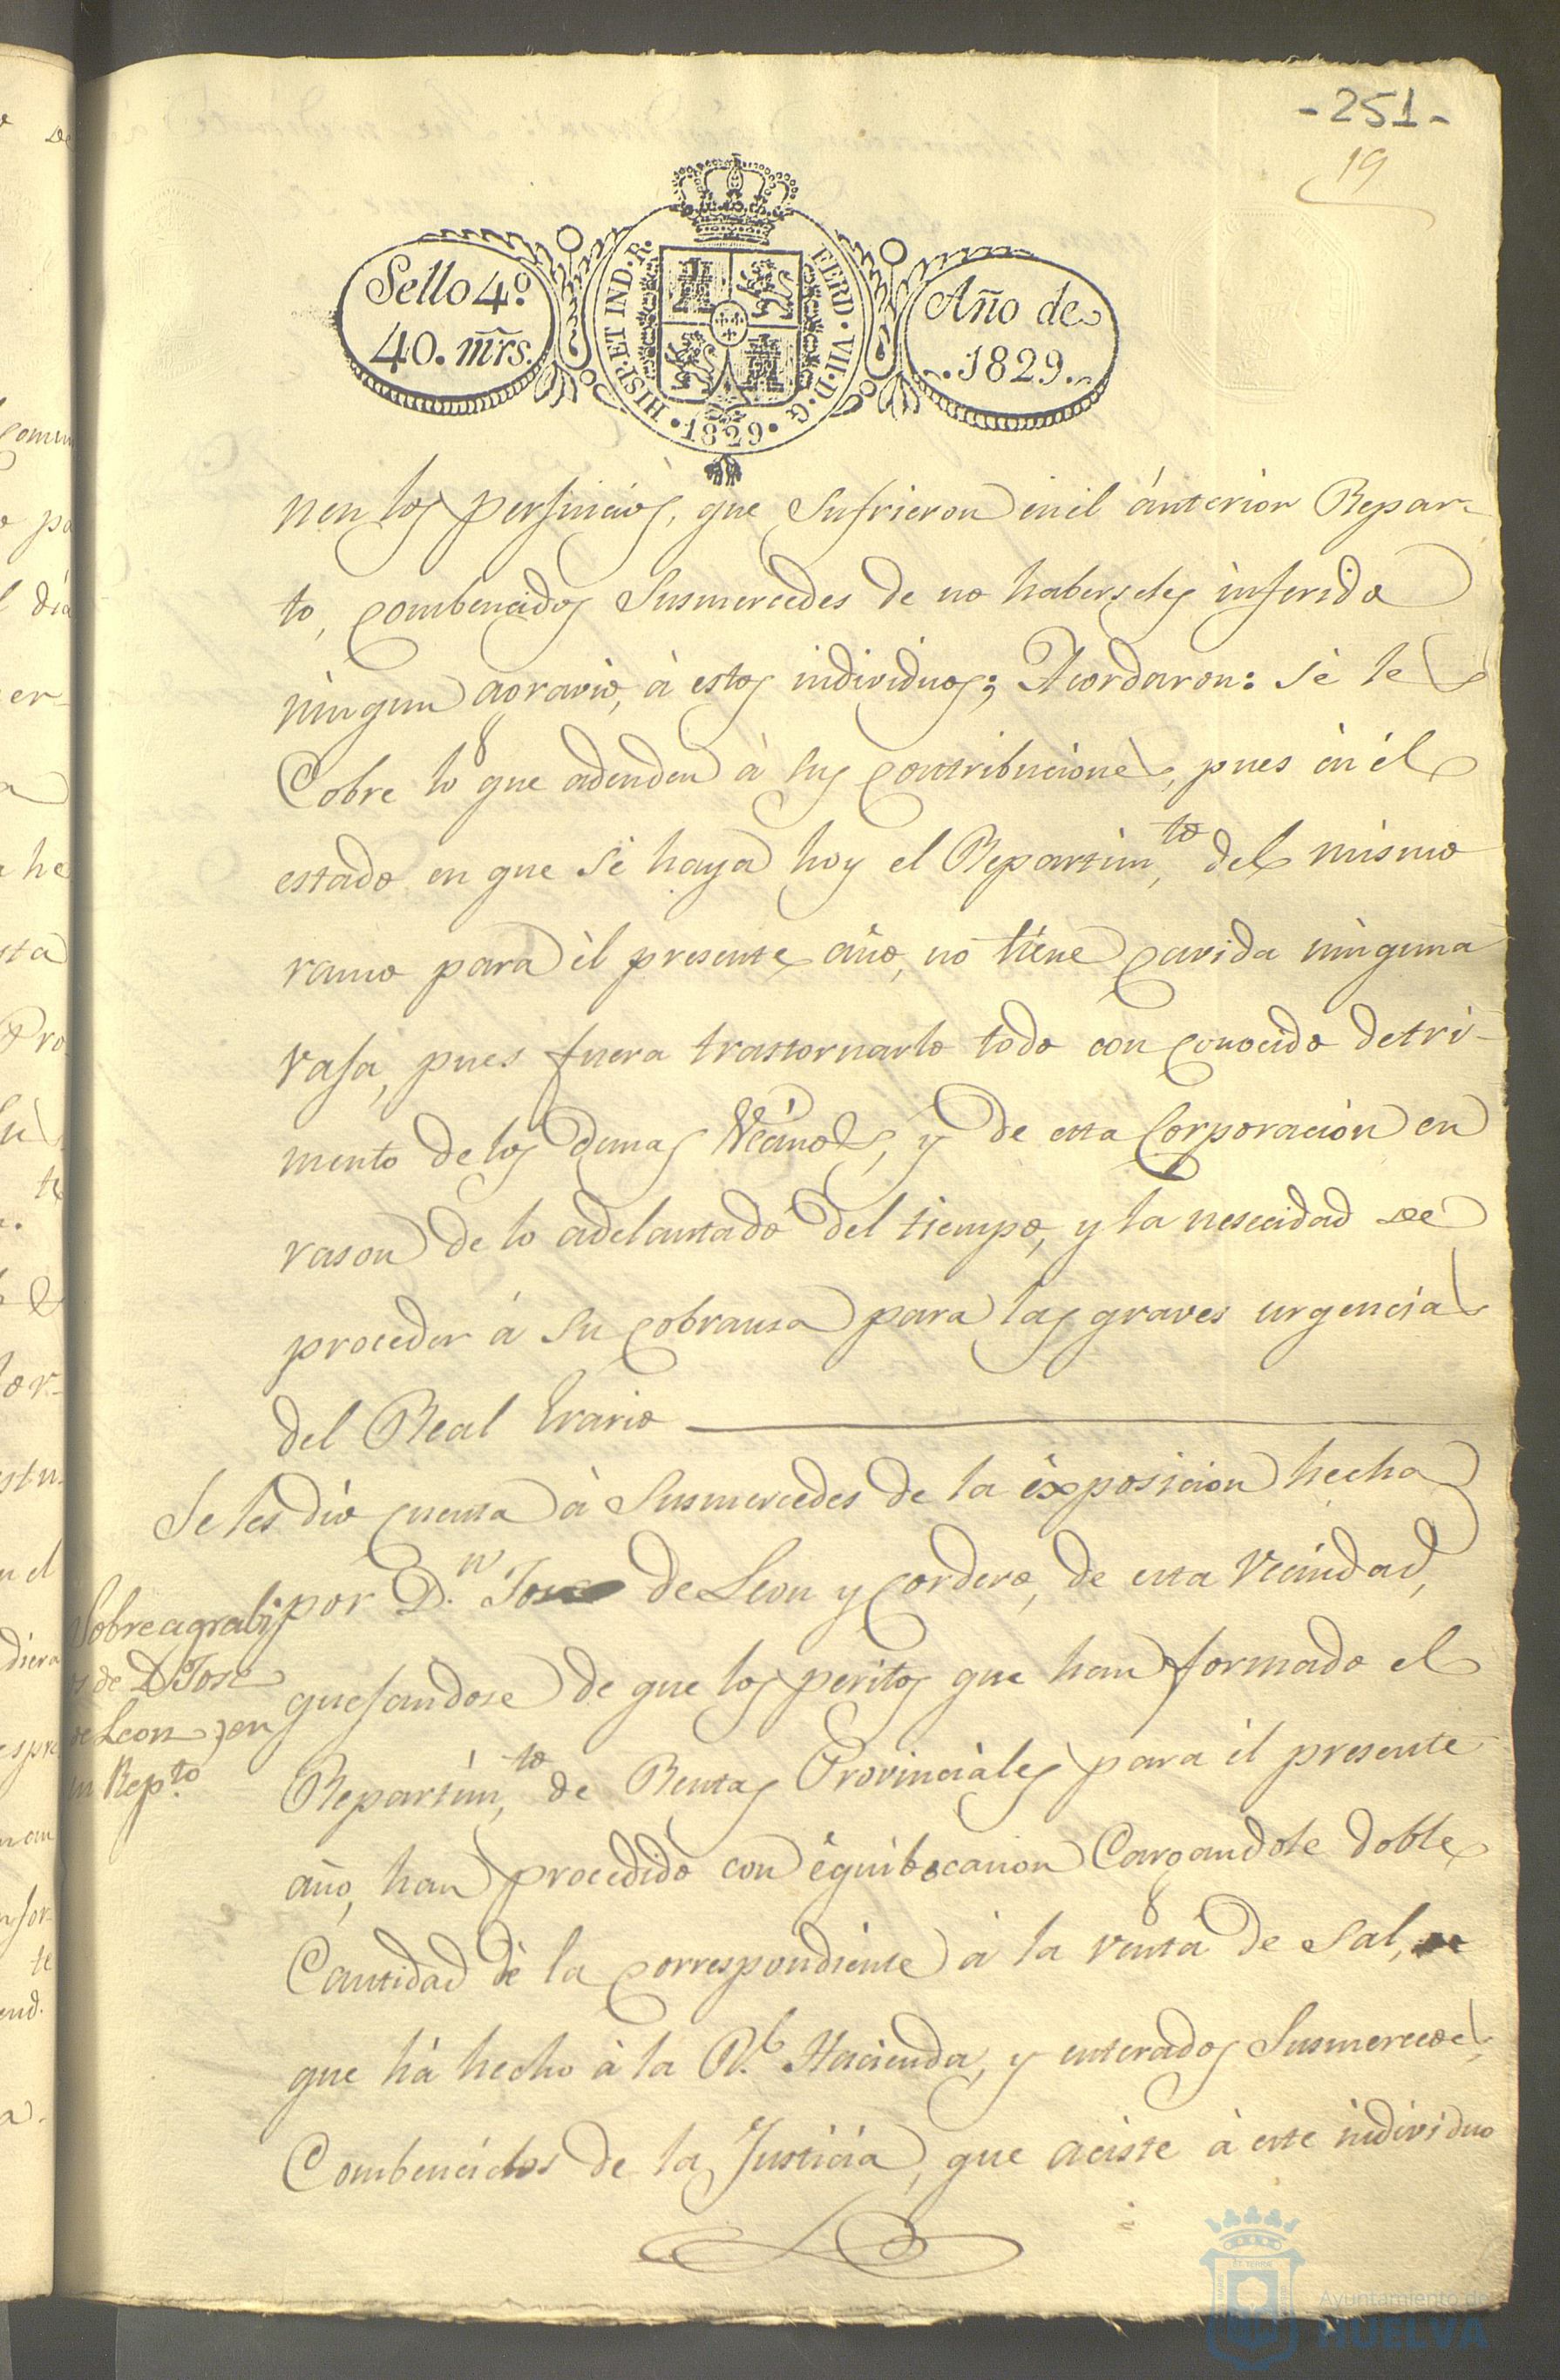 -251-
19
Sello 4.º
40. mrs.
HISP. ET IND. R.
FERD. VII. D. G.
1829
Año de
1829.
nen los perjuicios, que Sufrieron enel ánterior Repar-
to, combencidos Susmercedes de no haberseles inferido
ningun agravio, á estos individuos; Acordaron: se les
Cobre lo que adeuden á sus contribuciones, pues en él
estado en que se haya hoy el Repartim.to del mismo
ramo para él presente año, no tiene cavida ninguna
vaja, pues fuera trastornarlo todo con conocido detri-
mento de los demas Vecinos, y de esta Corporacion en
rason de lo adelantado del tiempo, y la nesecidad de
proceder á su cobransa para las graves urgencias
del Real Erario
Se les dio cuenta á Susmercedes de la exposicion hecha
por D.n Jose de Leon y Cordero, de esta Vecindad,
quejandose de que los peritos que han formado el
Repartim.to de Rentas Provinciales para él presente
año, han procedido con equibocacion Cargandole doble
Cantidad de la correspondiente á la venta de Sal,
que há hecho á la R.l Hacienda, y enterados Susmercedes
Combencidos de la Justicia, que aciste á este individuo
Sobre agrabi
os de D Jose
de Leon en
un Rep.to
Ayuntamiento de
HUELVA